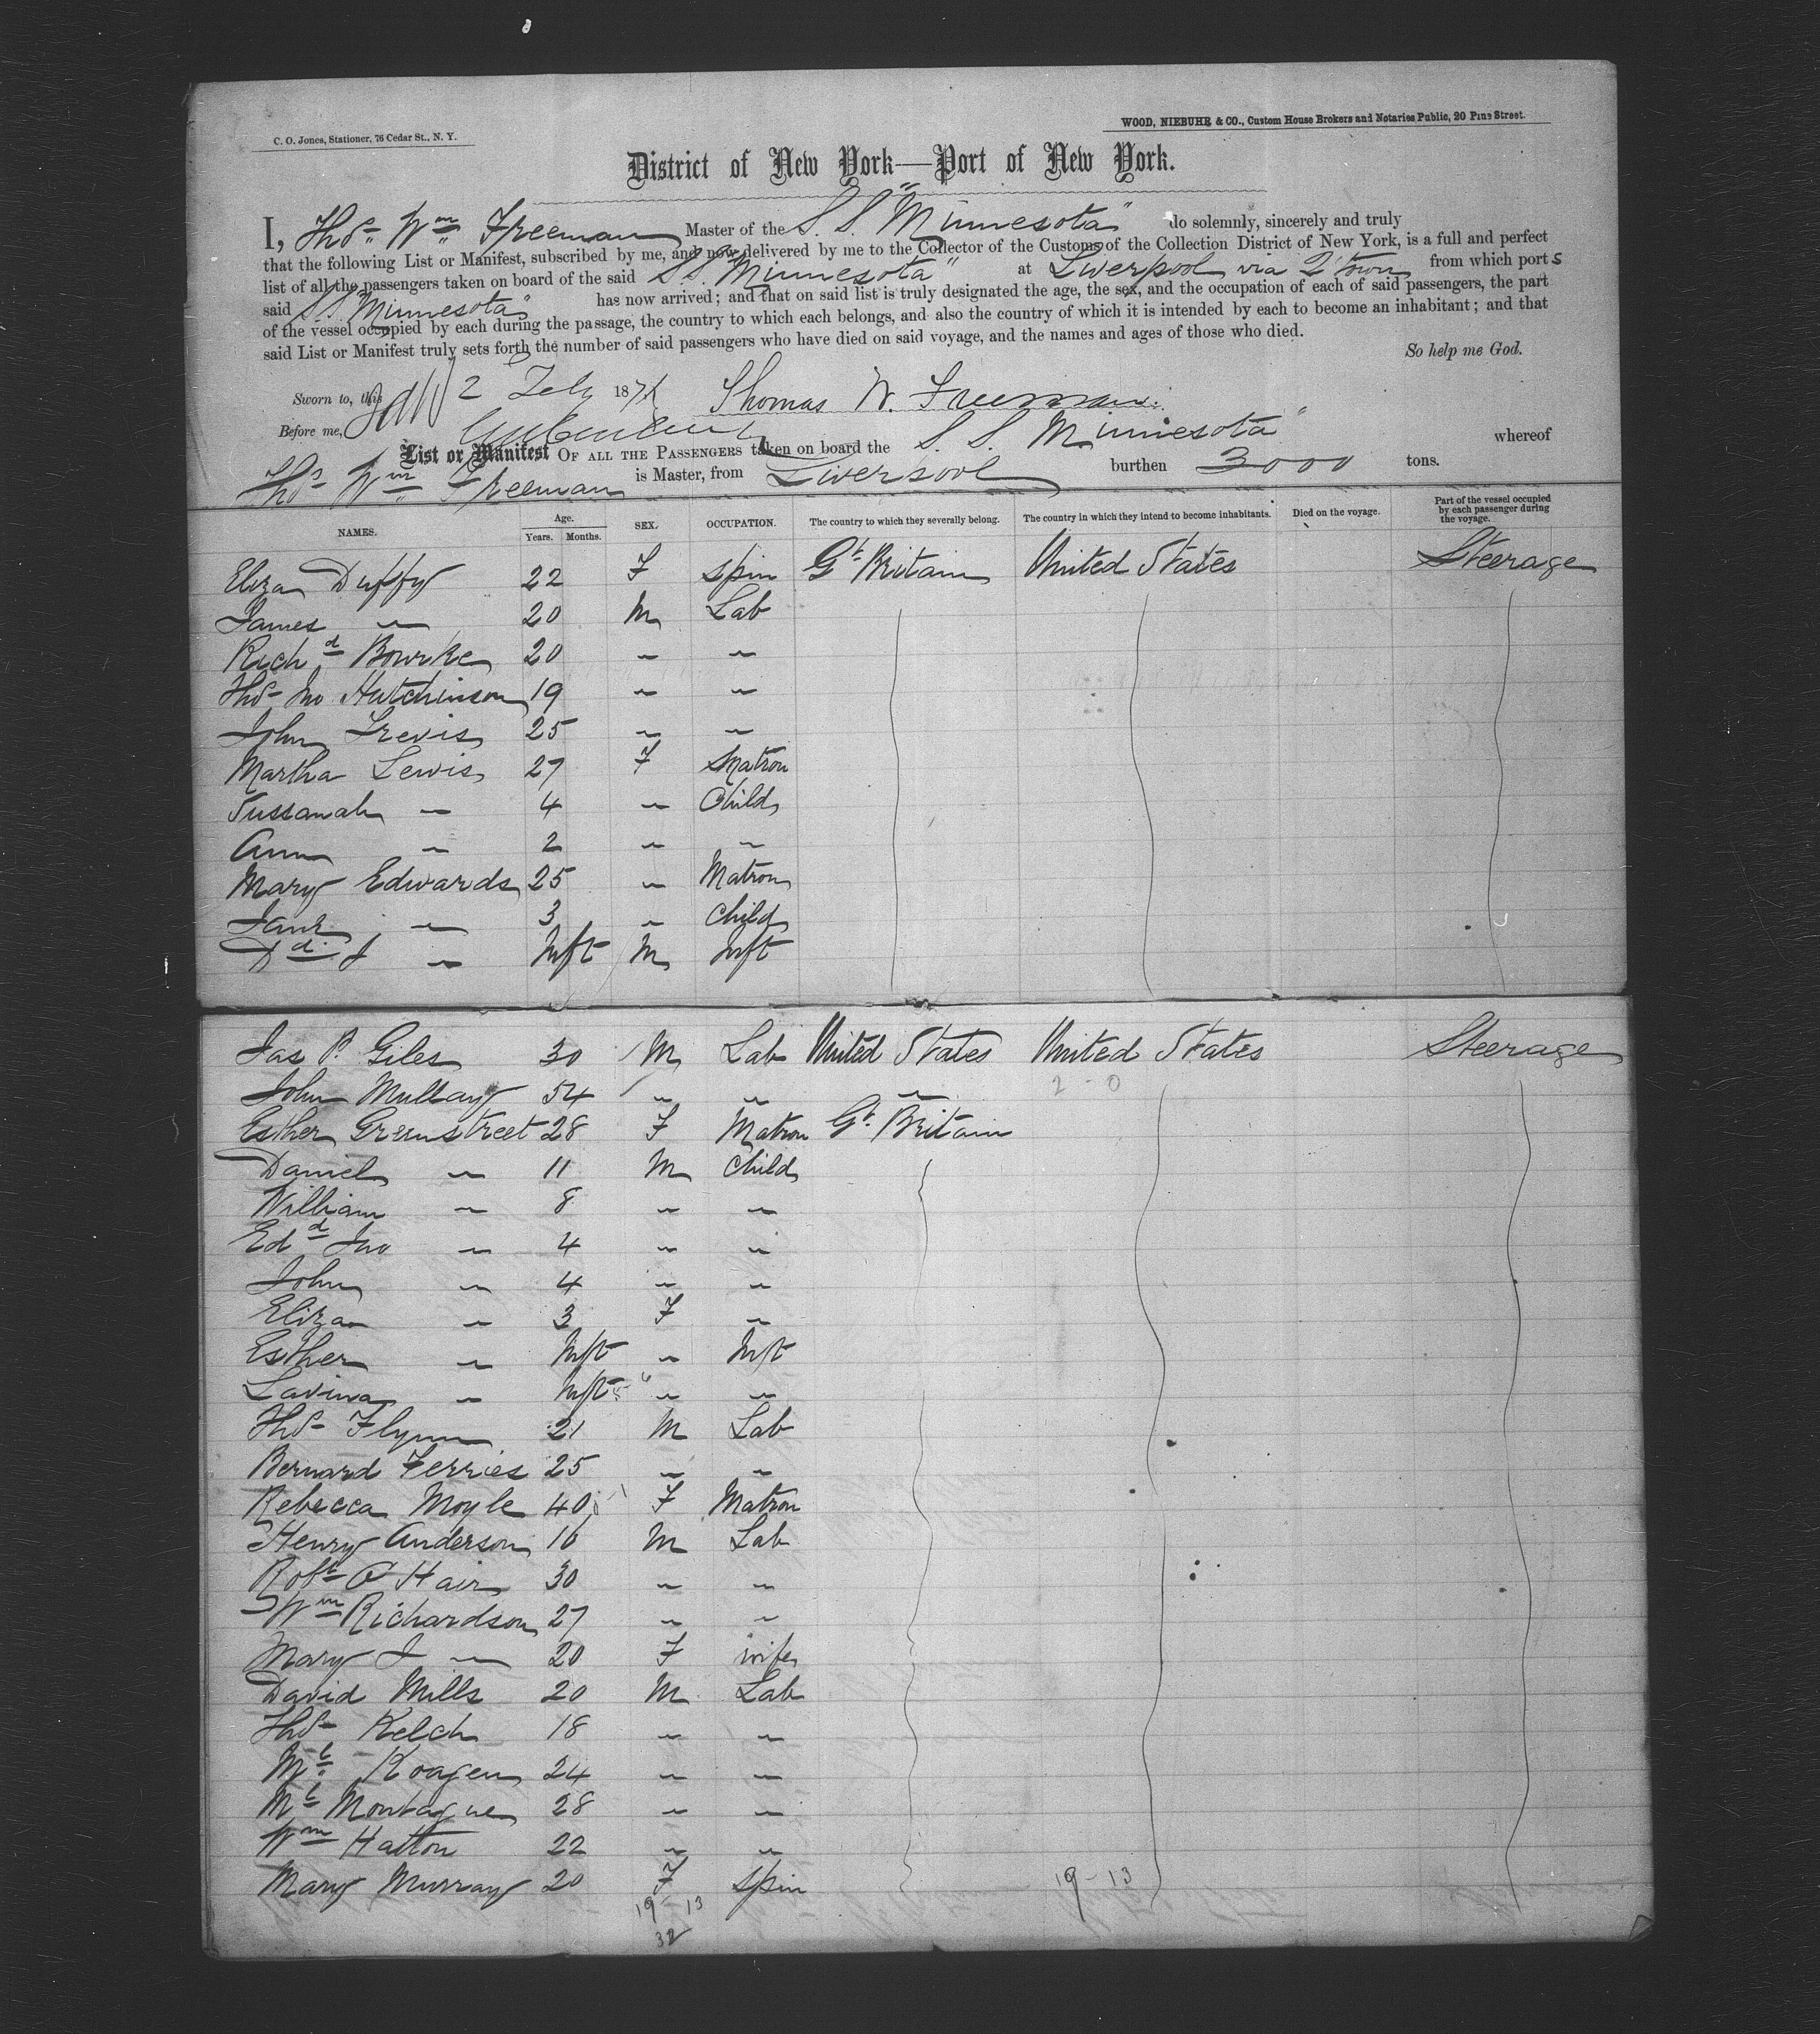 C. O. Jones, Stationer, 76 Cedar St., N. Y.
WOOD, NIEBUHR & CO., Custom House Brokers and Notaries Public, 20 Pine Street.
District of New York—Port of New York.
I, Thos. Wm. Freeman Master of the S. S. "Minnesota" do solemnly, sincerely and truly
that the following List or Manifest, subscribed by me, and now delivered by me to the Collector of the Customs of the Collection District of New York, is a full and perfect
list of all the passengers taken on board of the said S. S. "Minnesota" at Liverpool via Q'town from which ports
said S.S. "Minnesota" has now arrived; and that on said list is truly designated the age, the sex, and the occupation of each of said passengers, the part
of the vessel occupied by each during the passage, the country to which each belongs, and also the country of which it is intended by each to become an inhabitant; and that
said List or Manifest truly sets forth the number of said passengers who have died on said voyage, and the names and ages of those who died.
So help me God.
Sworn to, this 2 Feby 187 Thomas W. Freeman.
Before me,
List or Manifest OF ALL THE PASSENGERS taken on board the S. S. Minnesota" whereof
Thos Wm. Freeman is Master, from Liverpool burthen 3000 tons.
NAMES. Age. Years. Months. SEX. OCCUPATION. The country to which they severally belong. The country in which they intend to become inhabitants. Died on the voyage. Part of the vessel occupied by each passenger during the voyage.
Eliza Duffy 22 F Spin Gt Britain United States Steerage
James " 20 M Lab
Richd Bourke 20 " "
Thos Jno Hutchinson 19 " "
John Trevis 25 " "
Martha Lewis 27 F Matron
Sussanah " 4 " Child
Ann " 2 " "
Mary Edwards 25 " Matron
Jane " 3 " Child
Dd. J " Inft M Inft
Jas P. Giles 30 M Lab United States United States Steerage
John Mullay 54 " " " 2 - 0
Esther Greenstreet 28 F Matron Gt. Britain
Daniel " 11 M Child
William " 8 " "
Edd Jno " 4 " "
John " 4 " "
Eliza " 3 F "
Esther " Inft " Inft
Lavina " Inft " "
Thos Flynn 21 M Lab
Bernard Ferries 25 " "
Rebecca Moyle 40 F Matron
Henry Anderson 16 M Lab
Robt O Hair 30 " "
Wm Richardson 27 " "
Mary J " 20 F wife
David Mills 20 M Lab
Thos Kelch 18 " "
Ml. Koagen 24 " "
Ml Montague 28 " "
Wm Hatton 22 " "
Mary Murray 20 F Spin 19 - 13
19 - 13
32